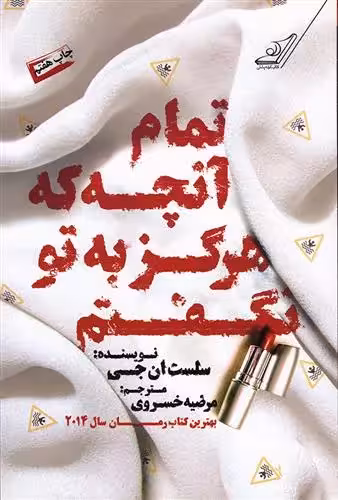 چاپ هفتم
کتاب کوله‌پشتی
تمام
آنچه که
هرگز به تو
نگفتم
نویسنده:
سلست ان جی
مترجم:
مرضیه خسروی
بهترین کتاب رمان سال ۲۰۱۴